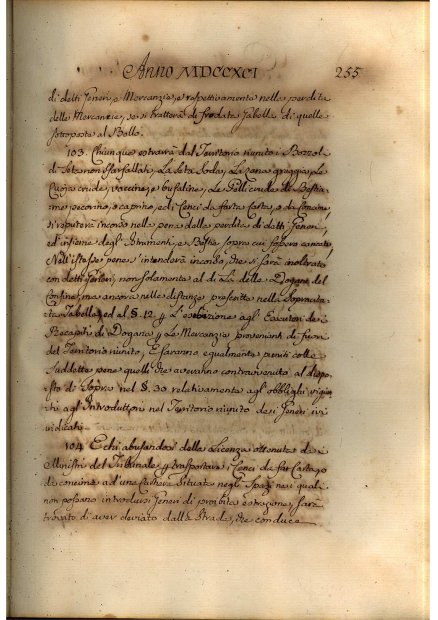 Anno MDCCXCI 255
di detti Generi, e Mercanzie, e respettivamente nella perdita
delle Mercanzie, se si tratterà di frodata Gabella di quelle
sottoposte al Bollo.
103. Chiunque estrarrà dal Territorio riunito i Bozzoli
di Seta non sfarfallati, La Seta Soda, La Lana greggia, Le
Cuoja crude, vaccine, e bufaline, Le Pelli crude di Bestia-
me pecorino, e caprino, ed i Cenci da farta Carta, o da Concime,
s'reputerà incorso nella pena della perdita di detti Generi,
ed insieme degl' Istrumenti, e Bestie sopra cui fossero caricati,
Nell'istessa pena s'intenderà incorso, chi si sarà inoltrato
con detti Generi, non solamente al di là delle Dogane del
Confine, ma ancora nelle distanze prescritte nella Sopracita-
ta Tabella, ed al §. 12. per l'esibizione agl' Esecutori de i
Recapiti di Dogana per le Mercanzie provenienti di fuori
del Territorio riunito, E saranno egualmente puniti colle
Suddette pene quelli che averanno contravvenuto al dispo-
sto di Sopra nel §. 30 relativamente agl' obblighi ingiun-
ti agl' Introduttori nel Territorio riunito de i Generi ivi
indicati.
104. E chi abusandosi della Licenza ottenuta da i
Ministri del Tribunale per trasportare i Cenci da far Carta, o
da concime ad una fabbrica Situata negli Spazi ne i quali
non possono introdursi Generi di proibita estrazione, sarà
trovato di aver deviato dalla Strada, che conduce